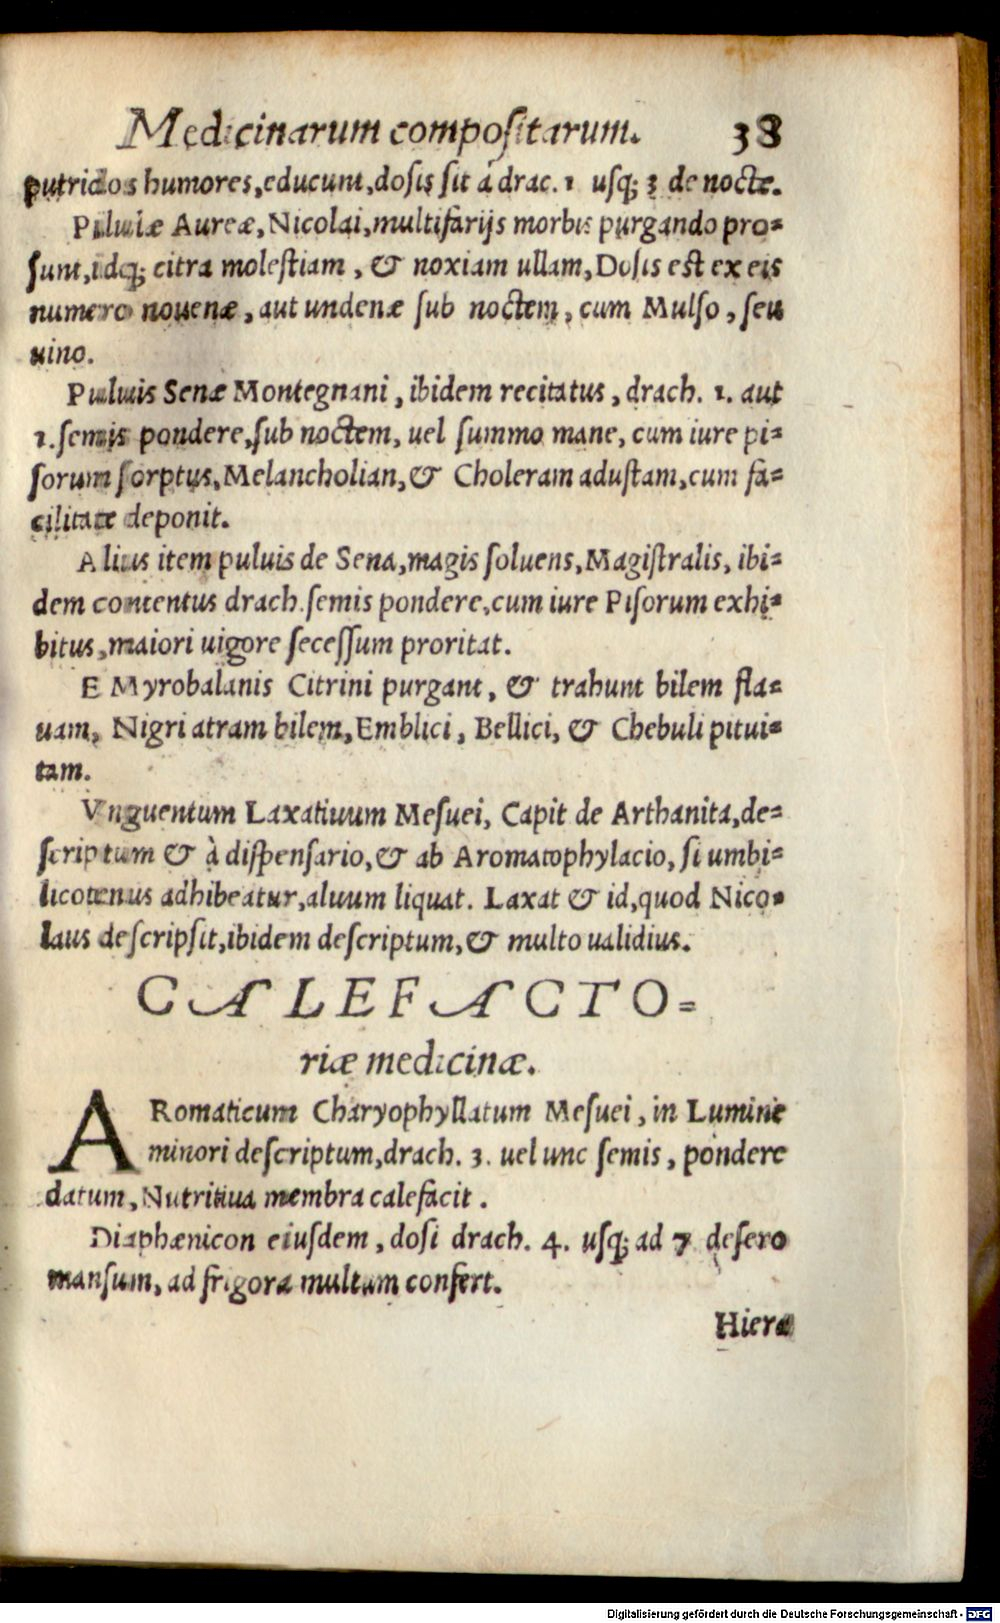 Medicinarum compositarum. 38
putridos humores,educunt,dosis sit à drac. 1 usq; 3 de nocte.
Pilulæ Aureæ,Nicolai,multifarijs morbis purgando pro=
sunt,idq; citra molestiam, & noxiam ullam,Dosis est ex eis
numero nouenæ, aut undenæ sub noctem, cum Mulso, seu
uino.
Puluis Senæ Montegnani, ibidem recitatus, drach. 1. aut
1.semis pondere,sub noctem, uel summo mane, cum iure pi=
sorum sorptus,Melancholian,& Choleram adustam,cum fa=
cilitate deponit.
Alius item puluis de Sena,magis soluens,Magistralis, ibi=
dem contentus drach.semis pondere,cum iure Pisorum exhi=
bitus,maiori uigore secessum proritat.
E Myrobalanis Citrini purgant, & trahunt bilem fla=
uam, Nigri atram bilem,Emblici, Bellici, & Chebuli pitui=
tam.
Vnguentum Laxatiuum Mesuei, Capit de Arthanita,de=
scriptum & à dispensario,& ab Aromatophylacio, si umbi=
licotenus adhibeatur,aluum liquat. Laxat & id,quod Nico=
laus descripsit,ibidem descriptum,& multo ualidius.
CALEFACTO=
riæ medicinæ.
ARomaticum Charyophyllatum Mesuei, in Lumine
minori descriptum,drach. 3. uel unc semis, pondere
datum, Nutritiua membra calefacit.
Diaphænicon eiusdem, dosi drach. 4. usq; ad 7 desero
mansum, ad frigora multum confert.
Hiera
Digitalisierung gefördert durch die Deutsche Forschungsgemeinschaft - DFG